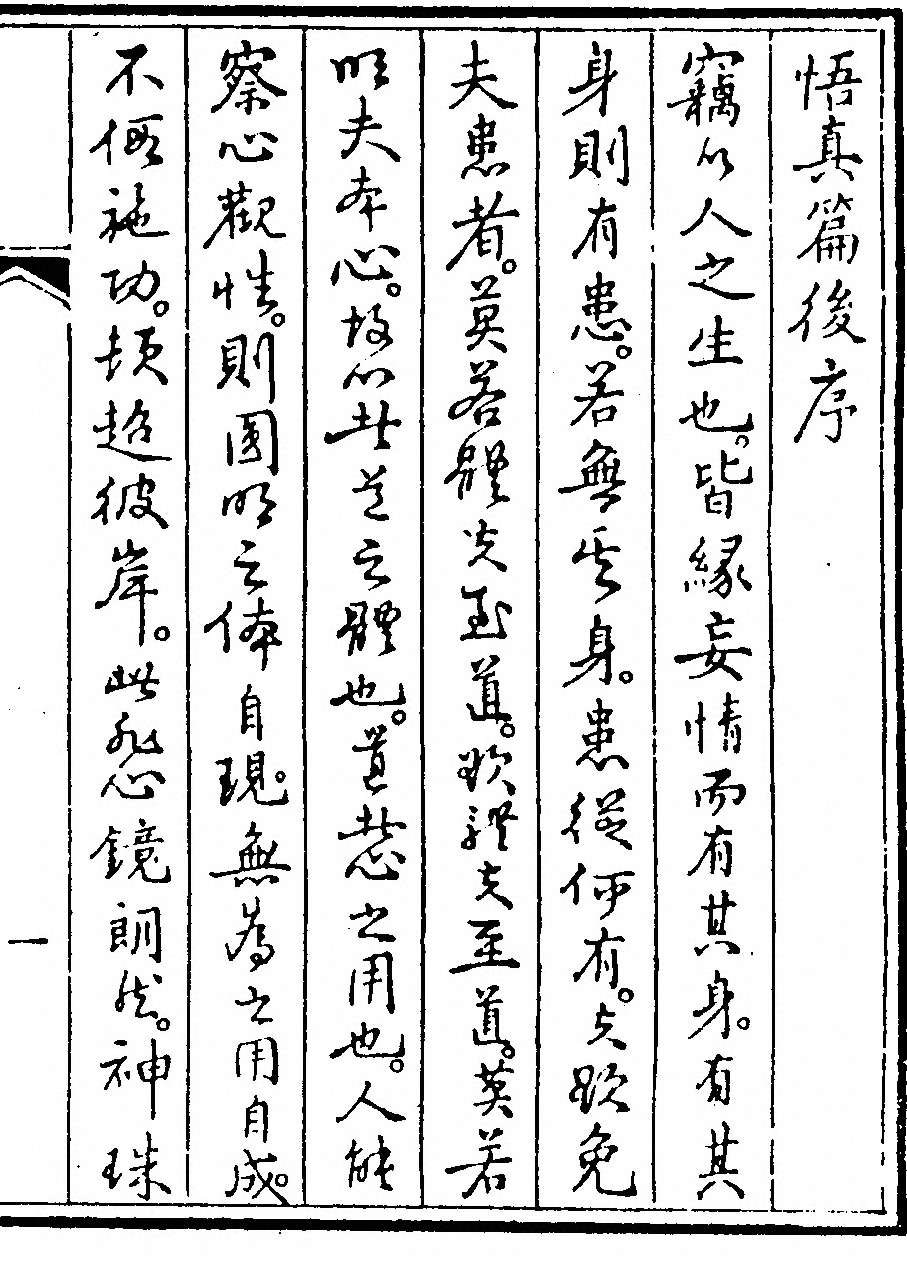 悟真篇後序
竊以人之生也。皆緣妄情而有其身。有其
身則有患。若無其身。患從何有。夫欲免
夫患者。莫若體夫至道。欲體夫至道。莫若
明夫本心。故心者道之體也。道者心之用也。人能
察心觀性。則圓明之体自現。無為之用自成。
不假施功。頓超彼岸。此非心鏡朗然。神珠
一